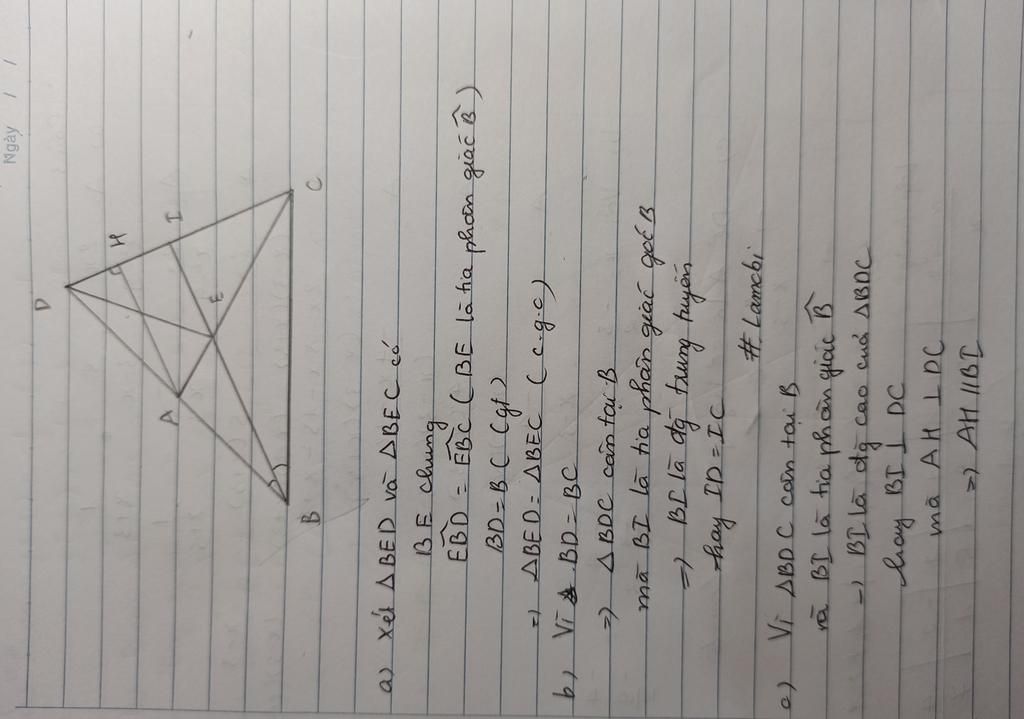 Ngày / /
D
H
I
A
E
B
C
a) Xét ΔBED và ΔBEC có
BE chung
EBD = EBC ( BE là tia phân giác B )
BD = BC ( gt )
=) ΔBED = ΔBEC ( c.g.c )
b) Vì BD = BC
=) ΔBDC cân tại B
mà BI là tia phân giác góc B
=) BI là đg trung tuyến
hay ID = IC
# Lamchi
c) Vì ΔBDC cân tại B
và BI là tia phân giác B
=) BI là đg cao của ΔBDC
hay BI ⊥ DC
mà AH ⊥ DC
=) AH // BI